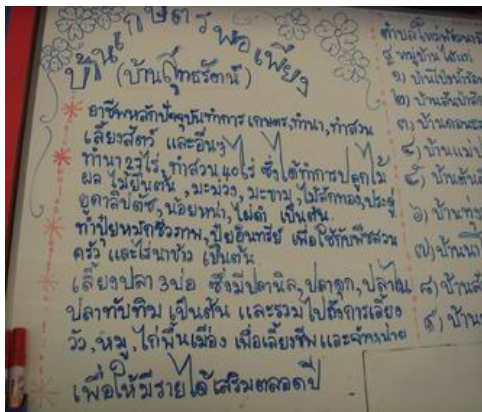 บ้านเกษตรพอเพียง
(บ้านสุทธรัตน์)
อาชีพหลักปัจจุบันทำการเกษตร,ทำนา,ทำสวน
เลี้ยงสัตว์ และอื่นๆ
ทำนา 23 ไร่, ทำสวน 40 ไร่ ซึ่งได้ทำการปลูกไม้
ผล ไม้ยืนต้น,มะม่วง,มะขาม,ไม้สักทอง,ประดู่
ยูคาลิปตัช,น้อยหน่า,ไผ่ดำ เป็นต้น
ทำปุ๋ยหมักชีวภาพ,ปุ๋ยอินทรีย์ เพื่อใช้กับพืชสวน
ครัว และไร่นาข้าว เป็นต้น
เลี้ยงปลา 3 บ่อ ซึ่งมีปลานิล,ปลาดุก,
ปลาทับทิม เป็นต้น และรวมไปถึงการเลี้ยง
วัว,หมู,ไก่พื้นเมือง เพื่อเลี้ยงชีพและจำหน่าย
เพื่อให้มีรายได้เสริมตลอดปี
๑)
๒)
๓) บ้าน
๔) บ้านแม่
๕) บ้าน
๖) บ้านทุ่ง
๗) บ้าน
๘) บ้าน
๙) บ้าน